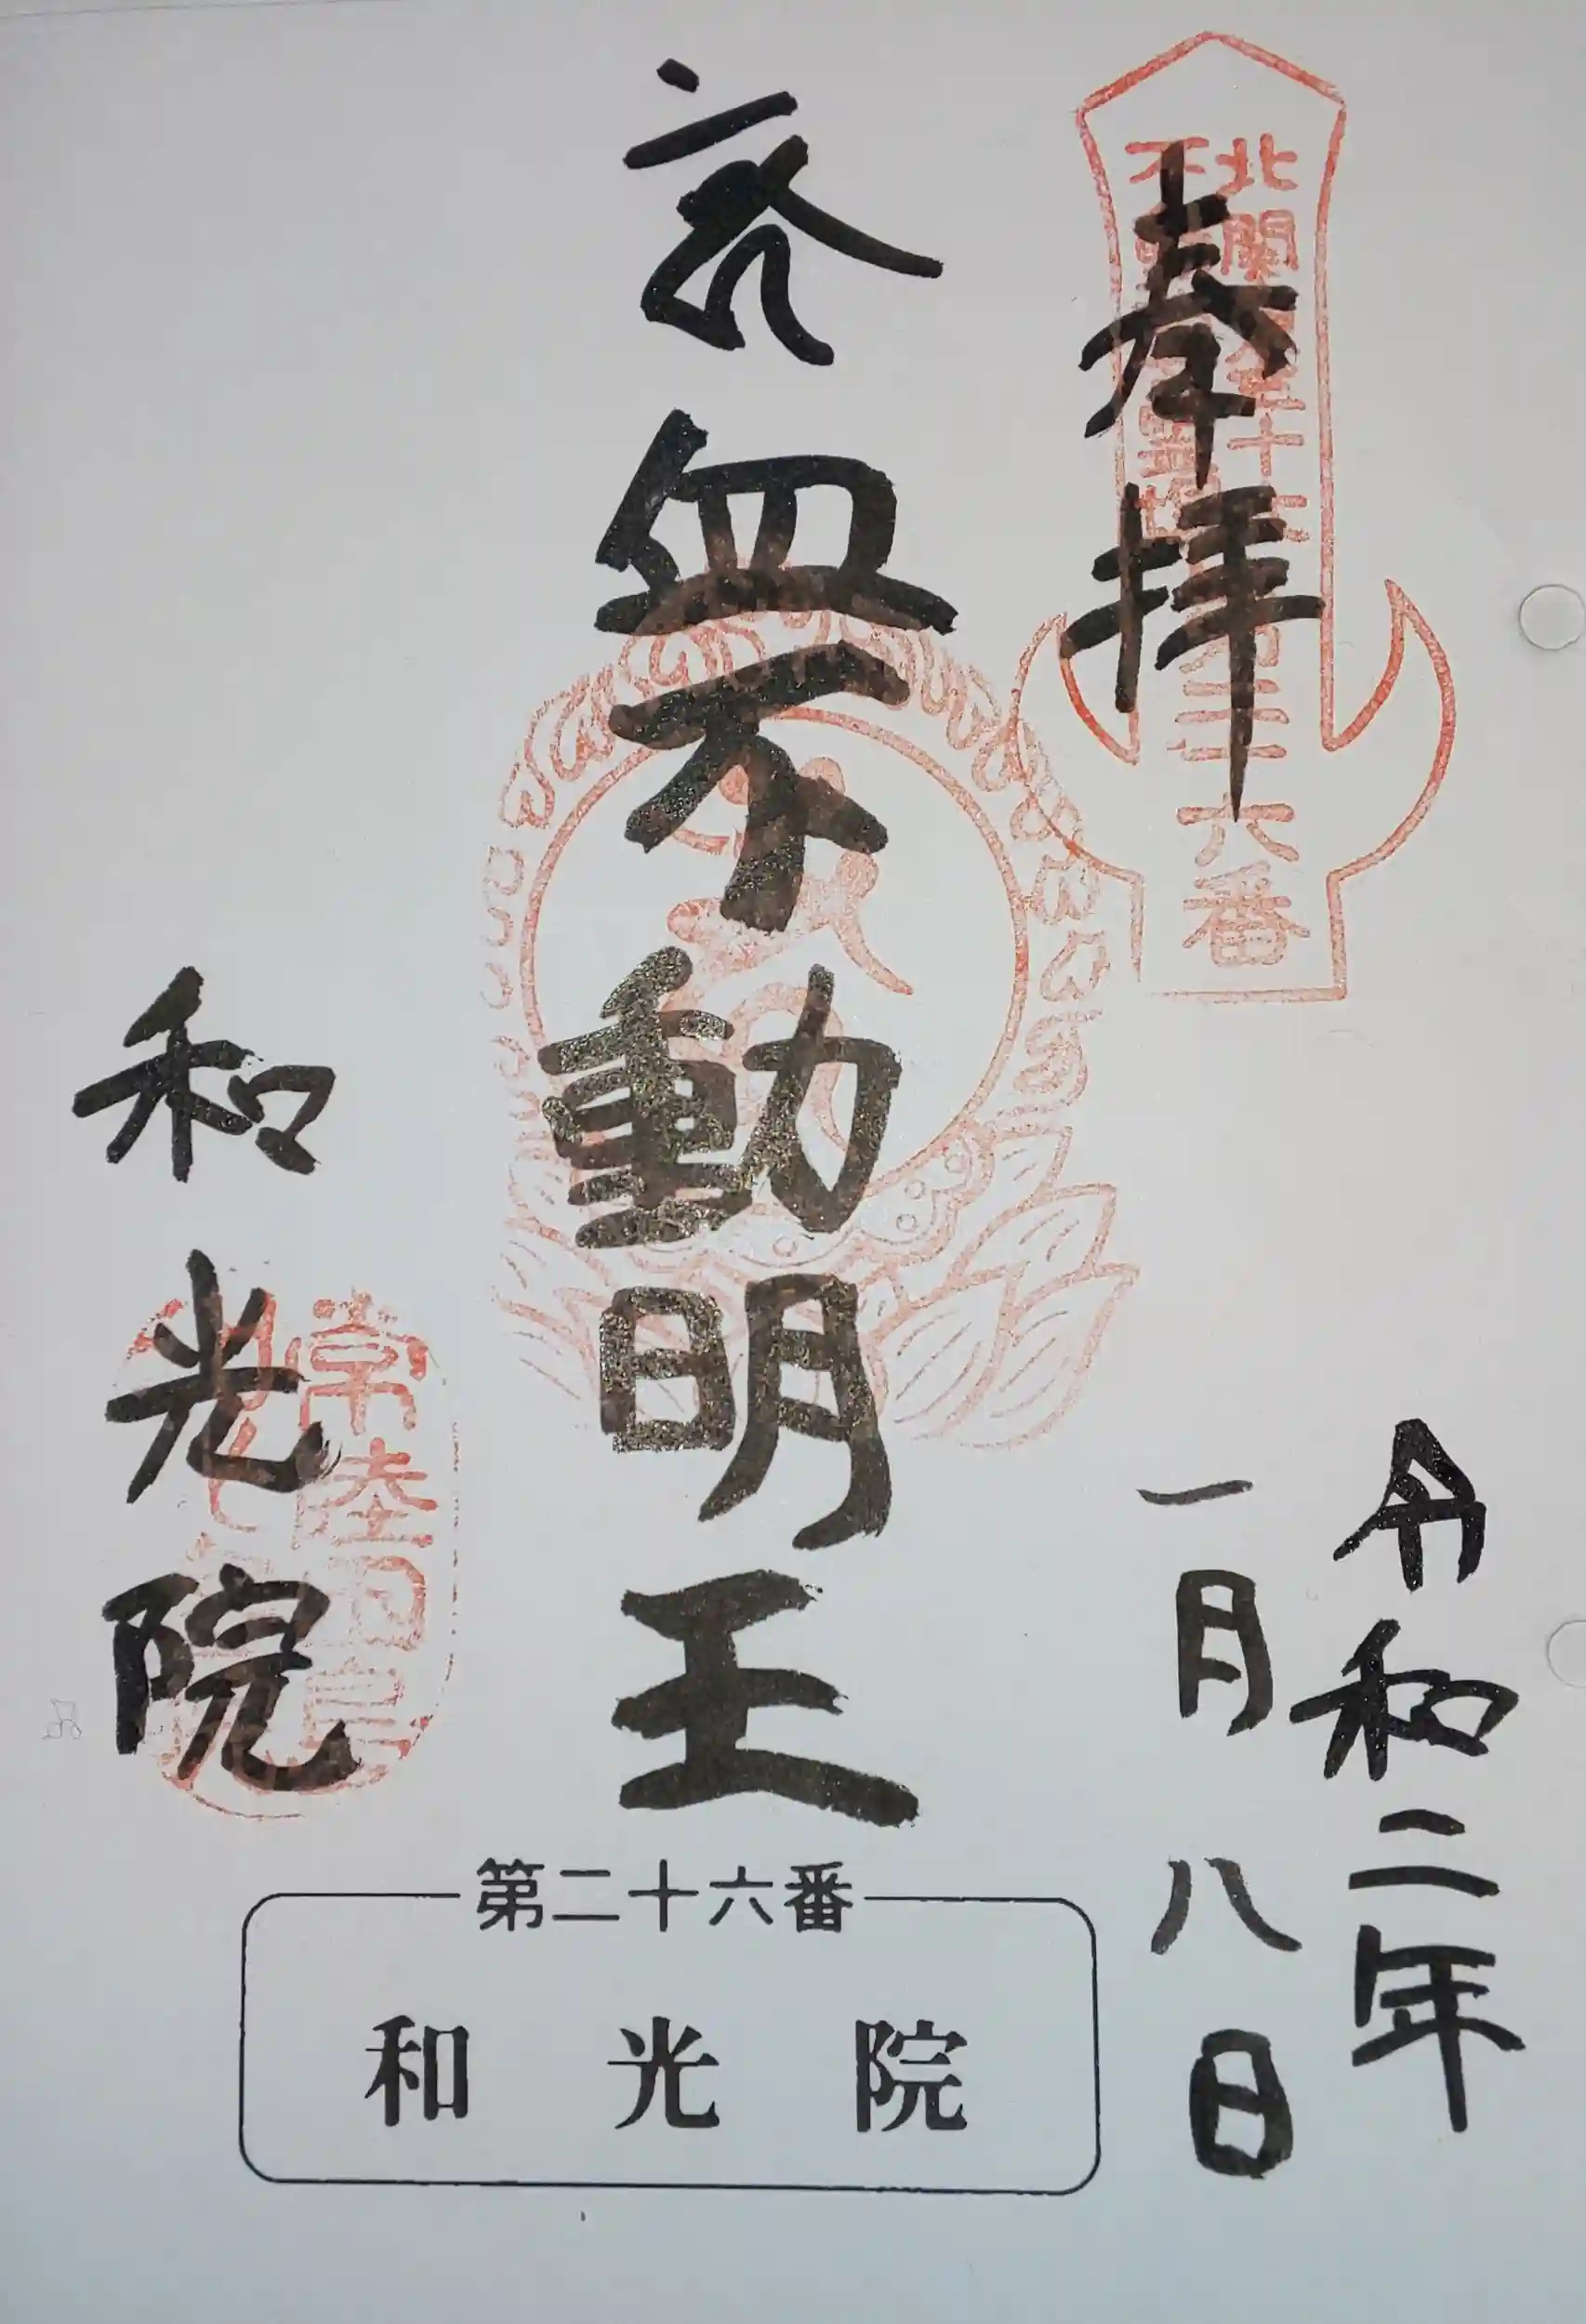 奉拝
北関東三十六
不動尊霊場
第二十六番
令和二年
一月八日
無不動明王
和光院
常陸田島
第二十六番
和光院